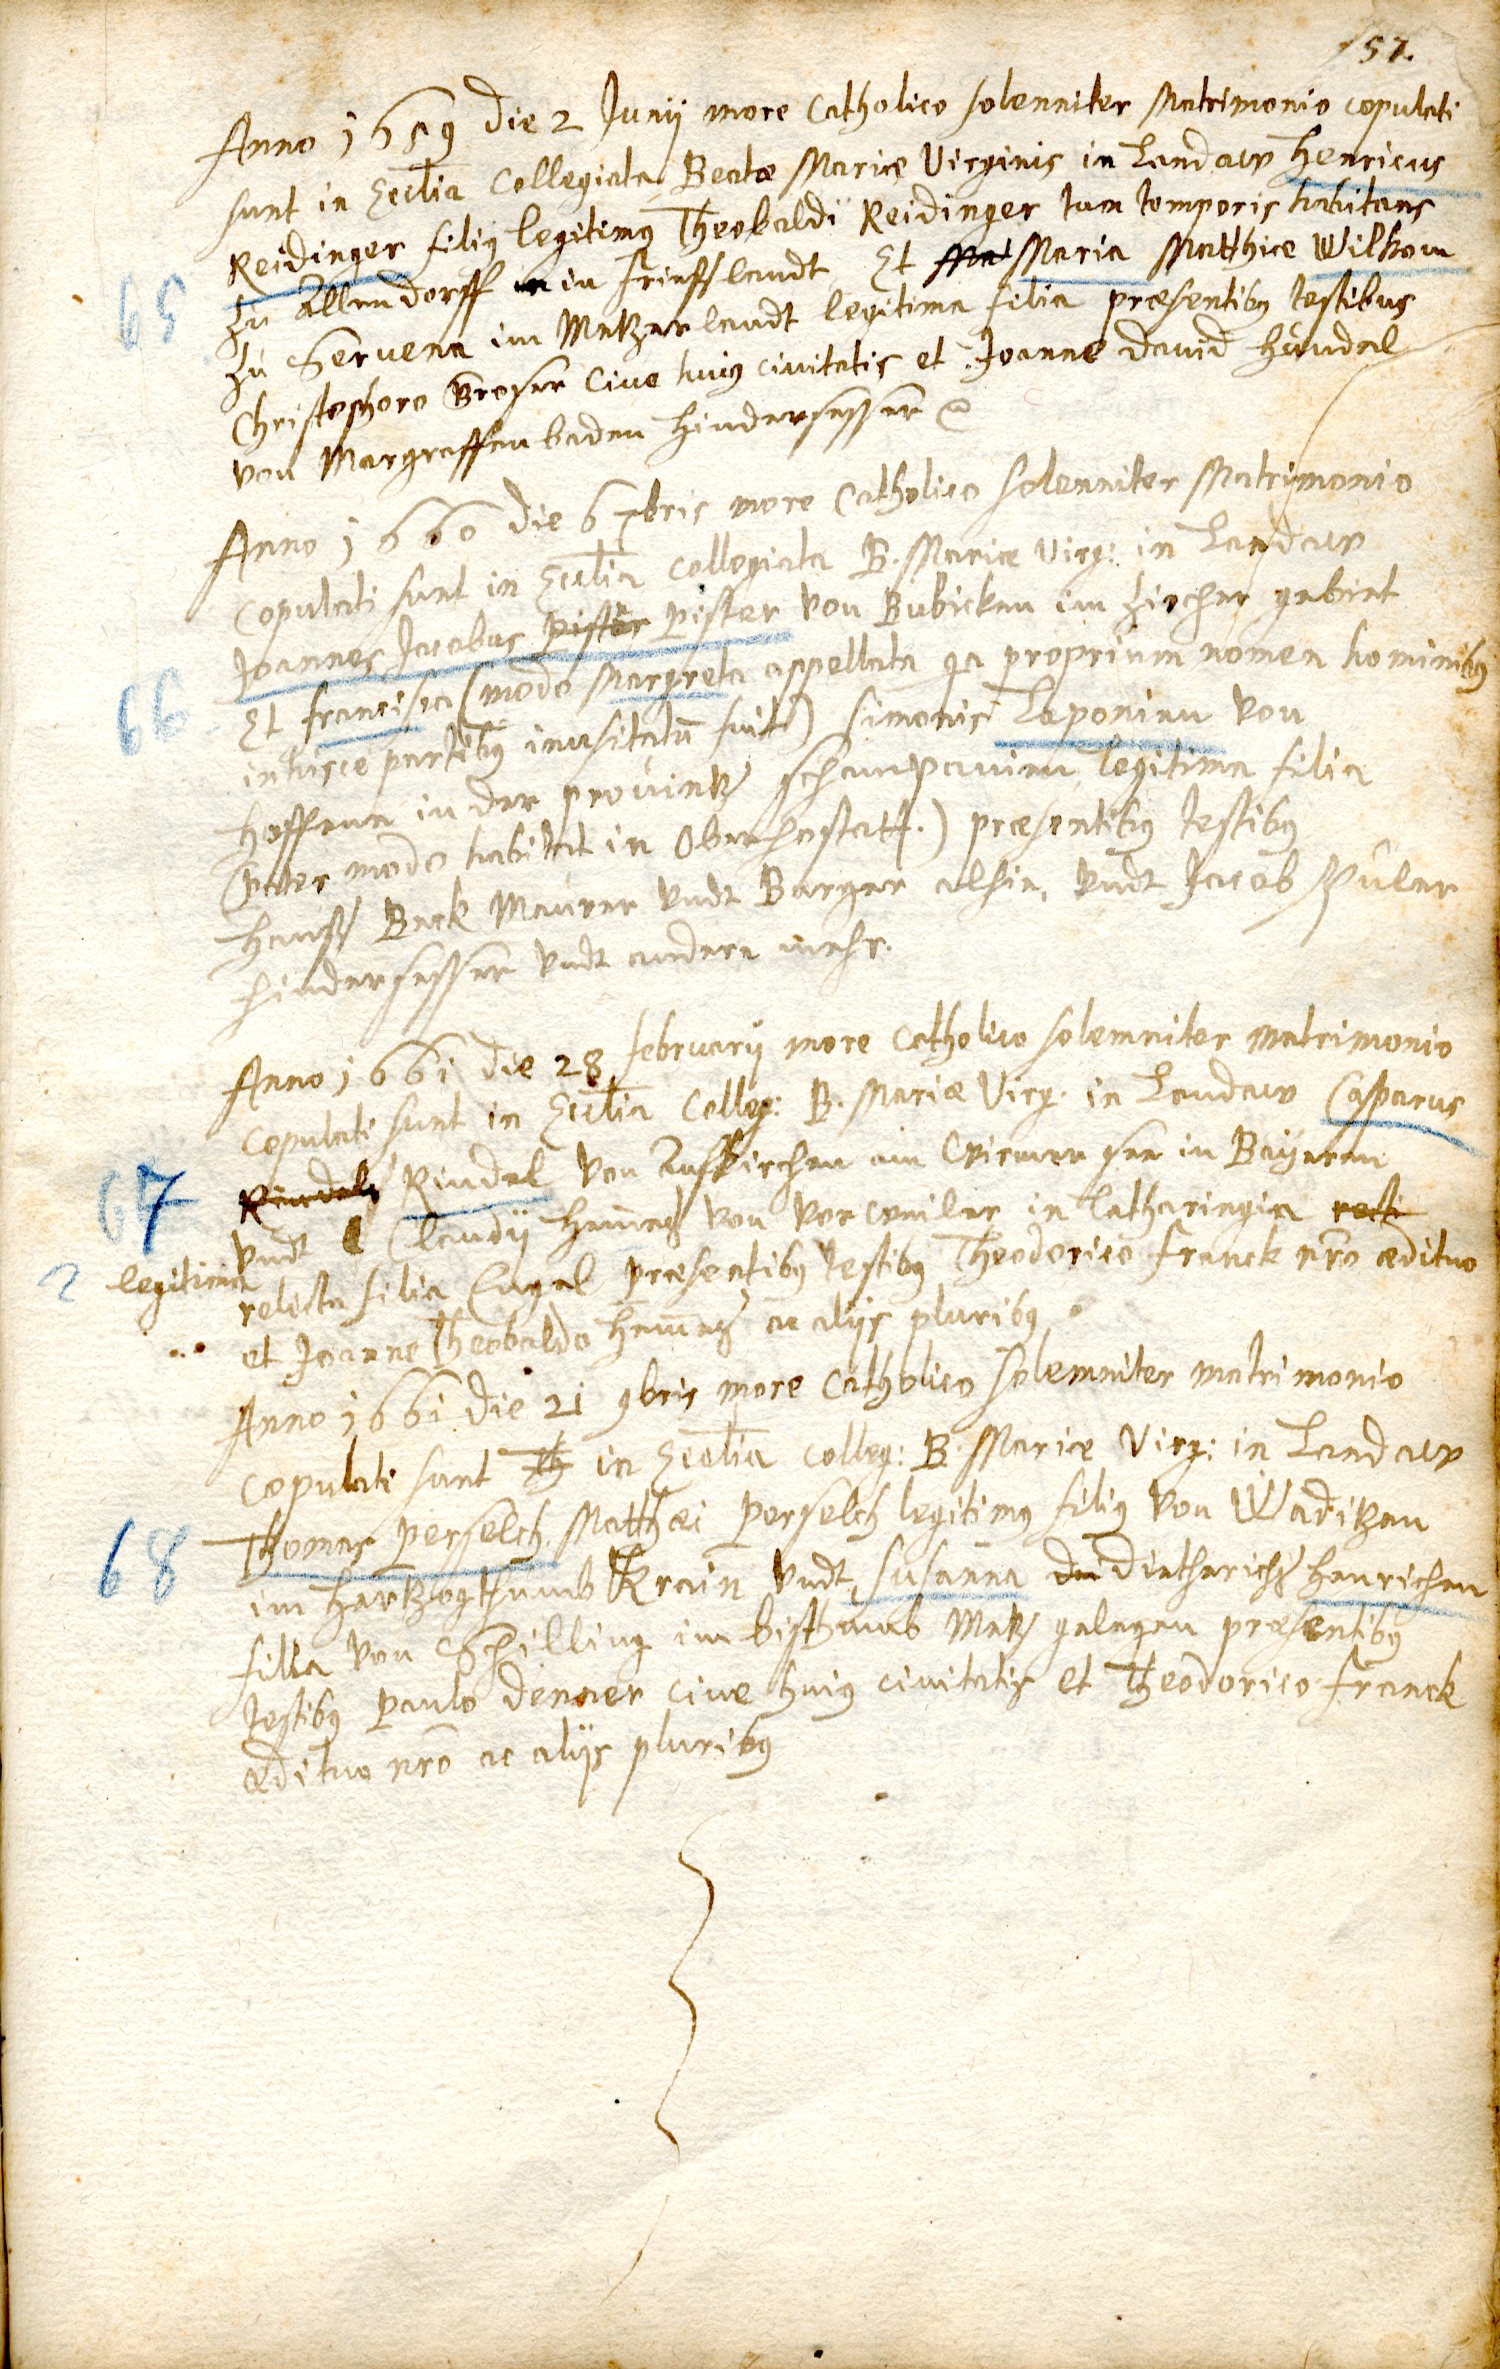 157.
Anno 1659 die 2 Junij more Catholico solenniter Matrimonio copulati
sunt in Eccl̄ia Collegiata Beatæ Mariæ Virginis in Landaw Henricus
Reidinger filiꝰ legitimꝰ Theobaldi Reidinger tum temporis habitans
65
zu Allendorff in Et Maria Matthiæ Wilkom
zu im Metzerlandt legitima filia præsentibꝰ testibus
Christophoro Broser Cive huiꝰ civitatis et Joanne David Hündel
von Margraffenbaden Hindersesser
Anno 1660 die 6 7bris more Catholico solenniter Matrimonio
Copulati sunt in Eccl̄ia Collegiata B. Mariæ Virg: in Landaw
Joannes Jacobus Pister Pister von Bubicken im Zircher gebiet
66
Et Francisca (modo Margreta appellata qa proprium nomen hominibꝰ
in hisce partibꝰ inusitatū fuit) Simonis Laponien von
in der provintz legitima filia
(Pater modo habitat in Oberhostatt.) præsentibꝰ testibꝰ
Hanß Beck Maurer vndt Burger alhie, vndt Jacob
hindersesser vndt andere mehr.
Anno 1661 die 28 februarij more Catholico solemniter matrimonio
copulati sunt in Eccl̄ia Colleg: B. Mariæ Virg. in Landaw Casparus
67
Rindel Rindel von Aufkirchen am Wirmer see in Bayeren
vndt Claudij von in Lotharingia
legitima
relicta filia Engel præsentibꝰ testibꝰ Theodorico Franck nr̄o ædituo
et Joanne Theobaldo ac alijs pluribꝰ
Anno 1661 die 21 9bris more Catholico solemniter matrimonio
copulati sunt Th in Eccl̄ia colleg: B. Mariæ Virg: in Landaw
68
Thomas Perselch Matthæi Perselch legitimꝰ filiꝰ von Waditzen
im Hertzogthumb Krain vndt Susanna Dietherichs Henrichen
filia von Schilling im bisthumb Metz gelegen præsentibꝰ
testibꝰ Paulo Denner cive huiꝰ civitatis et Theodorico Franck
ædituo nr̄o ac alijs pluribꝰ